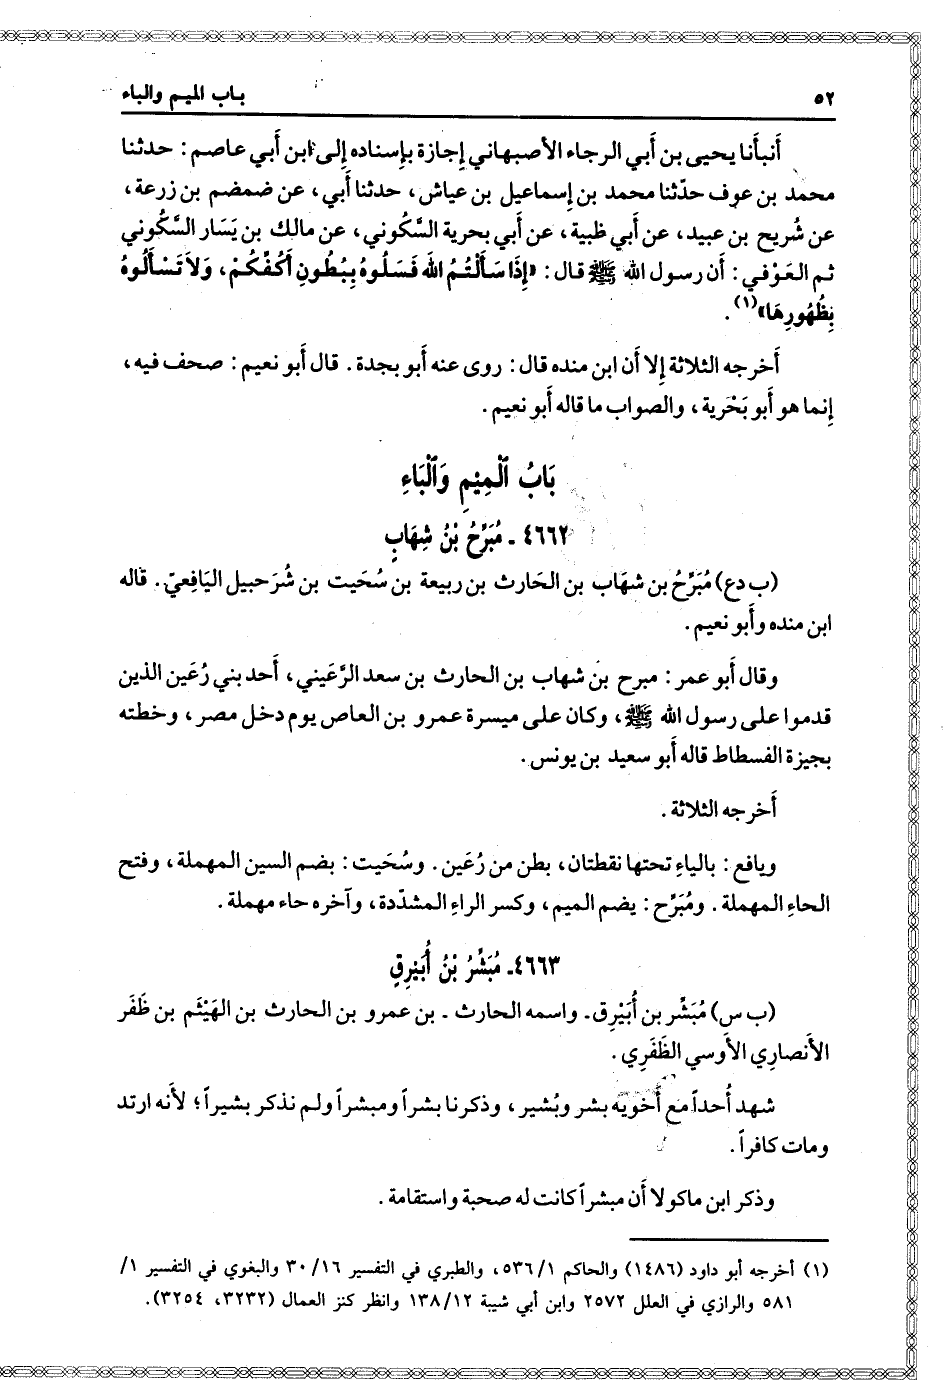 ٥٢
باب الميم والباء
أنبأنا يحيى بن أبي الرجاء الأصبهاني إجازة بإسناده إلى ابن أبي عاصم: حدثنا
محمد بن عوف حدّثنا محمد بن إسماعيل بن عياش، حدثنا أبي، عن ضمضم بن زرعة،
عن شُريح بن عبيد، عن أبي ظبية، عن أبي بحرية السَّكُوني، عن مالك بن يَسَار السَّكُوني
ثم العَوْفي: أن رسول الله ﷺ قال: «إِذَا سَأَلْتُمُ الله فَسَلُوهُ بِبُطُونِ أَكُفِّكُمْ، وَلاَ تَسْأَلُوهُ
بِظُهُورِهَا»(١).
أخرجه الثلاثة إلا أن ابن منده قال: روى عنه أبو بجدة. قال أبو نعيم: صحف فيه،
إنما هو أبو بَحْرية، والصواب ما قاله أبو نعيم.
بَابُ الْمِيْمِ وَالْبَاءِ
٤٦٦٢ ـ مُبَرِّحُ بْنُ شِهَابٍ
(ب دع) مُبَرِّحُ بن شهَاب بن الحَارث بن ربيعة بن سُحَيت بن شُرَحبيل اليَافِعيّ. قاله
ابن منده وأبو نعيم.
وقال أبو عمر: مبرح بن شهاب بن الحارث بن سعد الرَّعَيني، أحد بني رُعَين الذين
قدموا على رسول الله ﷺ، وكان على ميسرة عمرو بن العاص يوم دخل مصر، وخطته
بجيزة الفسطاط قاله أبو سعيد بن يونس.
أخرجه الثلاثة.
ويافع: بالياءِ تحتها نقطتان، بطن من رُعَين. وسُحَيت: بضم السين المهملة، وفتح
الحاءِ المهملة. ومُبَرِّح: يضم الميم، وكسر الراءِ المشدّدة، وآخره حاء مهملة.
٤٦٦٣ـ مُبَشِّرُ بْنُ أُبَيْرِقٍ
(ب س) مُبَشِّر بن أُبَيْرِق ـ واسمه الحارث ـ بن عمرو بن الحارث بن الهَيْثَم بن ظَفَر
الأنصاري الأوسي الظَفَرِي.
شهد أُحداً مع أخويه بشر وبُشير، وذكرنا بشراً ومبشراً ولم نذكر بشيراً؛ لأنه ارتد
ومات كافراً.
وذكر ابن ماكولا أن مبشراً كانت له صحبة واستقامة.
(١) أخرجه أبو داود (١٤٨٦) والحاكم ٥٣٦/١، والطبري في التفسير ٣٠/١٦ والبغوي في التفسير ١/
٥٨١ والرازي في العلل ٢٥٧٢ وابن أبي شيبة ١٣٨/١٢ وانظر كنز العمال (٣٢٣٢، ٣٢٥٤).